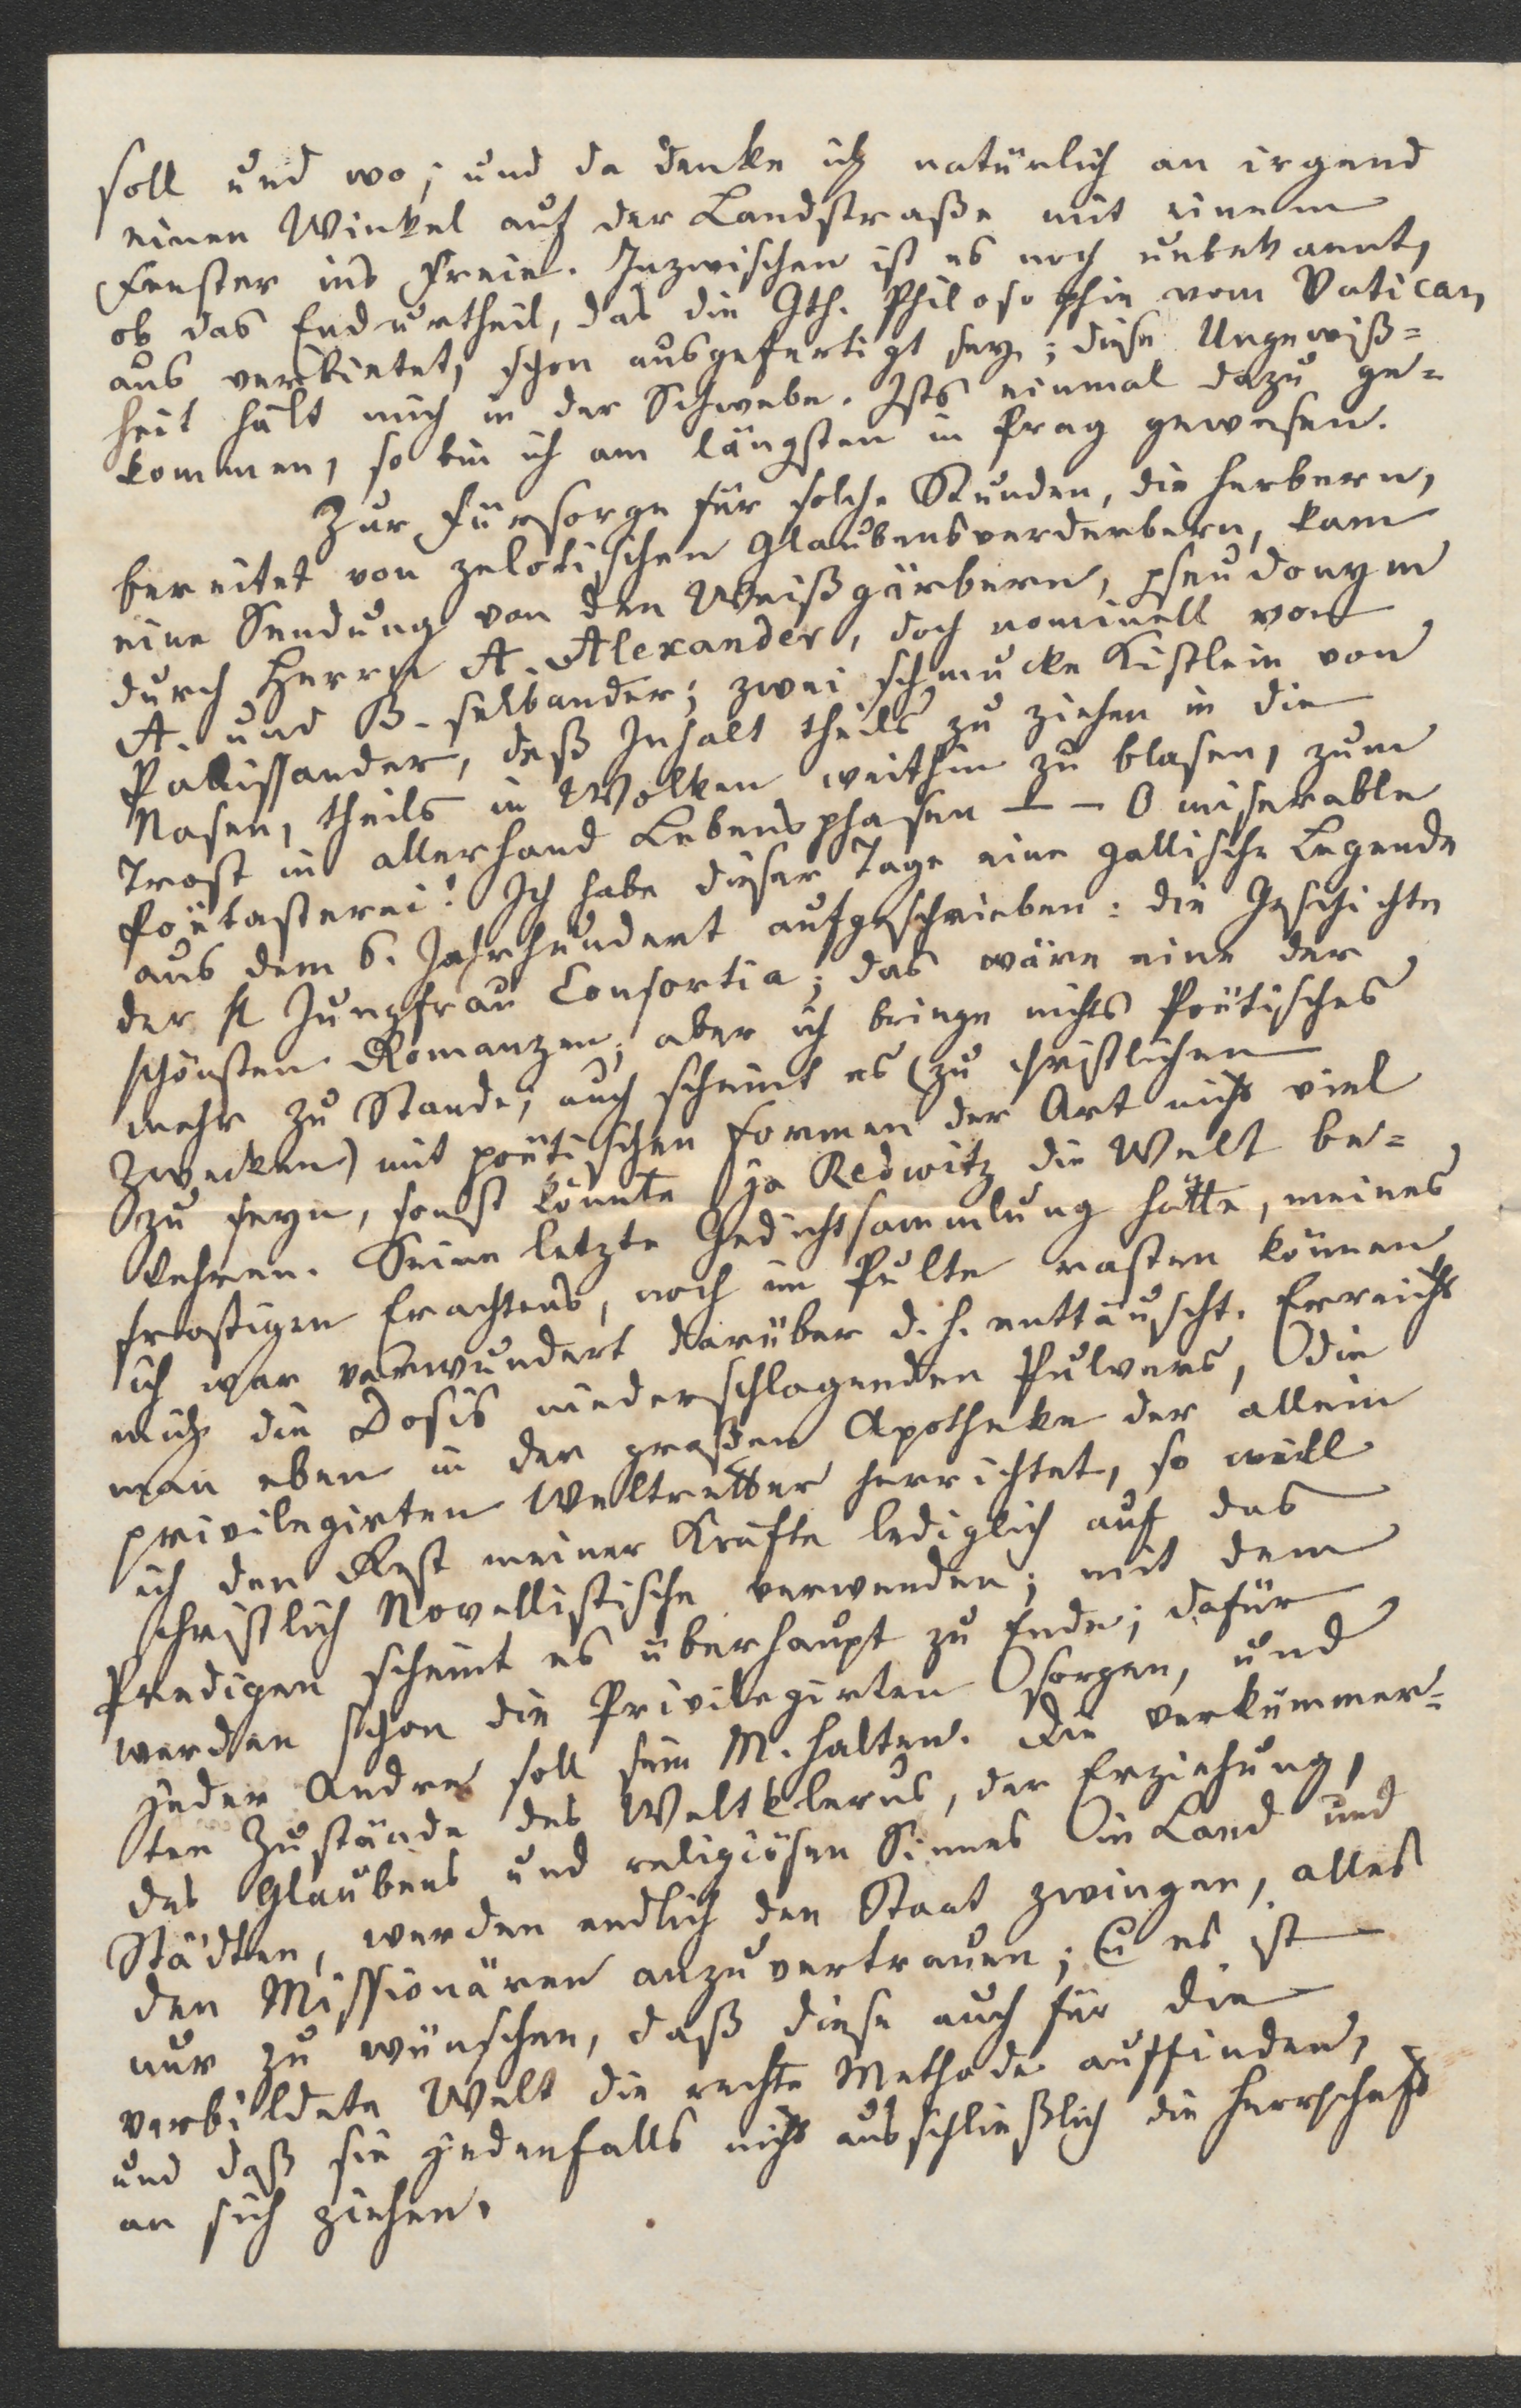 soll und wo; und da denke ich natürlich an irgend
einen Winkel auf der Landstraße mit einem
Fenster ins Freie. Inzwischen ist es noch unbekannt,
ob das Endurtheil, das die Gth. Philosophie vom Vatican
aus verbietet, schon ausgefertigt sey; diese Ungewiß=
heit hält mich in der Schwebe. Ists einmal dazu ge=
kommen, so bin ich am längsten in Prag gewesen.
Zur Fürsorge für solche Stunden, die herbern,
bereitet von zelotischen Glaubensverderbern, kam
eine Sendung von den Weißgärbern, pseudonym
durch Herrn A. Alexander, doch nominell von
A. und B. selbander; zwei schmucke Kistlein von
Palissander, deß Inhalt theils zu ziehen in die
Nasen, theils in Wolken weithin zu blasen, zum
Trost in allerhand Lebensphasen — — O miserable
Poëtasterei! Ich habe dieser Tage eine gallische Legende
aus dem 6. Jahrhundert aufgeschrieben: die Geschichte
der hl Jungfrau Consortia; das wäre eine der
schönsten Romanzen; aber ich bringe nichts Poëtisches
mehr zu Stande; auch scheint es (zu christlichen
Zwecken) mit poëtischen Formen der Art nicht viel
zu seyn, sonst könnte ja Redwitz die Welt be=
kehren. Seine letzte Gedichtsammlung hätte, meines
frostigen Erachtens, noch im Pulte rasten können
ich war verwundert darüber d. h. enttäuscht. Erreicht
mich die Dosis niederschlagenden Pulvers, die
man eben in der großen Apotheke der allein
privilegirten Weltretter herrichtet, so will
ich den Rest meiner Kräfte lediglich auf das
christlich Novellistische verwenden; mit dem
Predigen scheint es überhaupt zu Ende; dafür
werden schon die Privilegirten sorgen, und
jeder Andre soll sein M. halten. Die verkümmer=
ten Zustände des Weltklerus, der Erziehung,
des Glaubens und religiösen Sinnes in Land und
Städten, werden endlich den Staat zwingen, alles
den Missionären anzuvertrauen; & es ist
nur zu wünschen, daß diese auch für die
verbildete Welt die rechte Methode auffinden,
und daß sie jedenfalls nicht ausschließlich die Herrschaft
an sich ziehen.